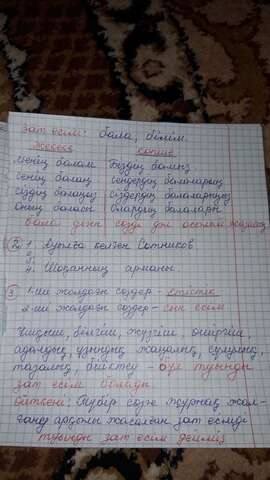 зат есім: бала, білім.
жекеше көпше
менің балам біздің баламыз
сенің балаң сендердің балаларың
сіздің балаңыз сіздердің балаларыңыз
оның баласы олардың балалары
бала деген сөзді дәл осылай
2. 1. Ауылға келген Сотников
3.
4. Шоқанның арманы.
3 1-ші жолдағы сөздер - етістік
2-ші жолдағы сөздер - сын есім
білгіш, жүзгіш,
адалдық, ұзындық, жақсылық, сұлулық,
тазалық, - бұл туынды
зат есім болады.
Түбір сөзге жұрнақ жал-
ғану арқылы жасалған зат есімді
туынды зат есім дейміз